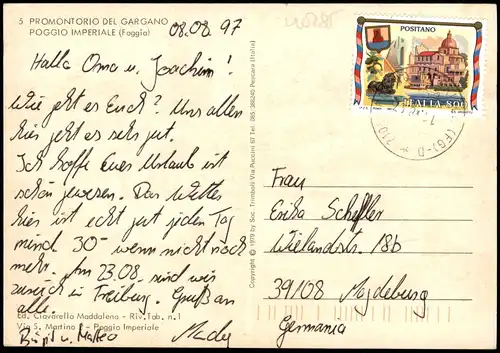 5 PROMONTORIO DEL GARGANO
POGGIO IMPERIALE (Foggia)
08.08.97
Hallo Oma u. Joachim!
Wie geht es Euch? Uns allen
hier geht es sehr gut.
Ich hoffe Euer Urlaub ist
schön gewesen. Das Wetter
hier ist echt gut jeden Tag
mind 30° wenn nicht noch
mehr. Am 23.08. sind wir
zurück in Freiburg. Gruß an
alle.
Ed. Ciavarella Maddalena - Riv. Tab. n. 1
Via S. Martino - Poggio Imperiale
Birgit u. Matteo
Copyright © 1979 by Soc. Trimboli Via Puccini 67 Tel. 085 386280 Pescara (Italia)
POSITANO
ITALIA 800
(FG)-D * 710
Frau
Erika Scheffler
Wielandstr. 18b
39108 Magdeburg
Germania